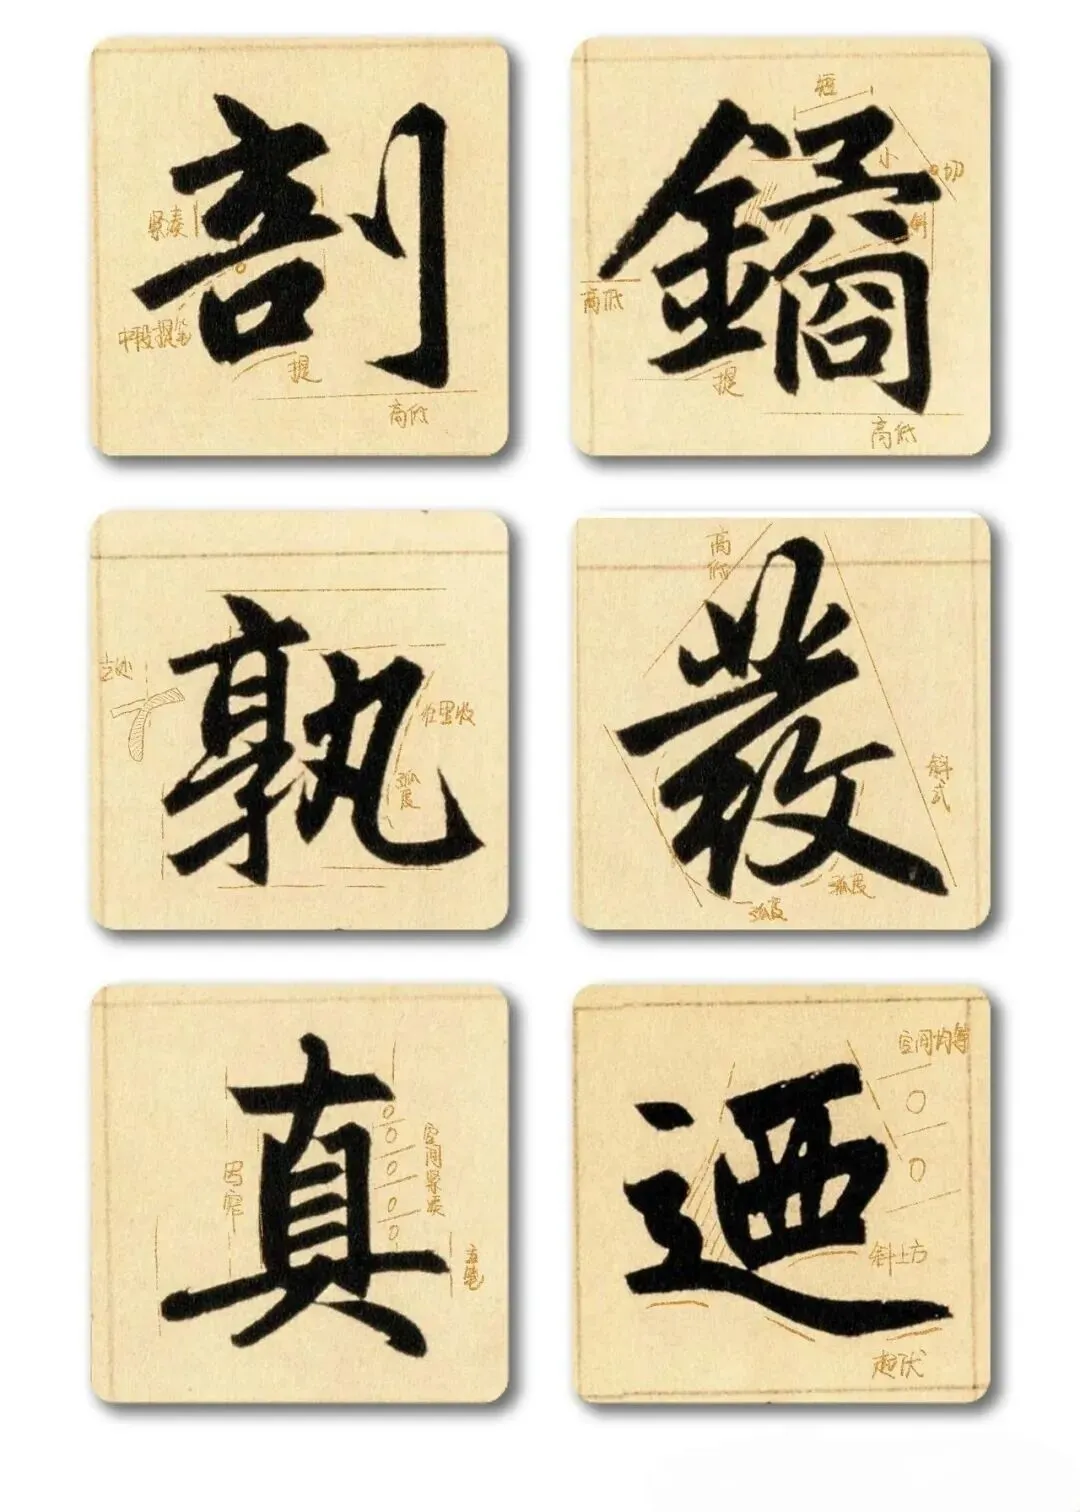 剖
紧凑
中段提笔
提
高低
鐍
短
小
切
斜
高低
提
高低
孰
往里收
弧度
發
高低
斜式
弧度
弧度
真
空间紧凑
迺
空间均等
斜上方
起伏